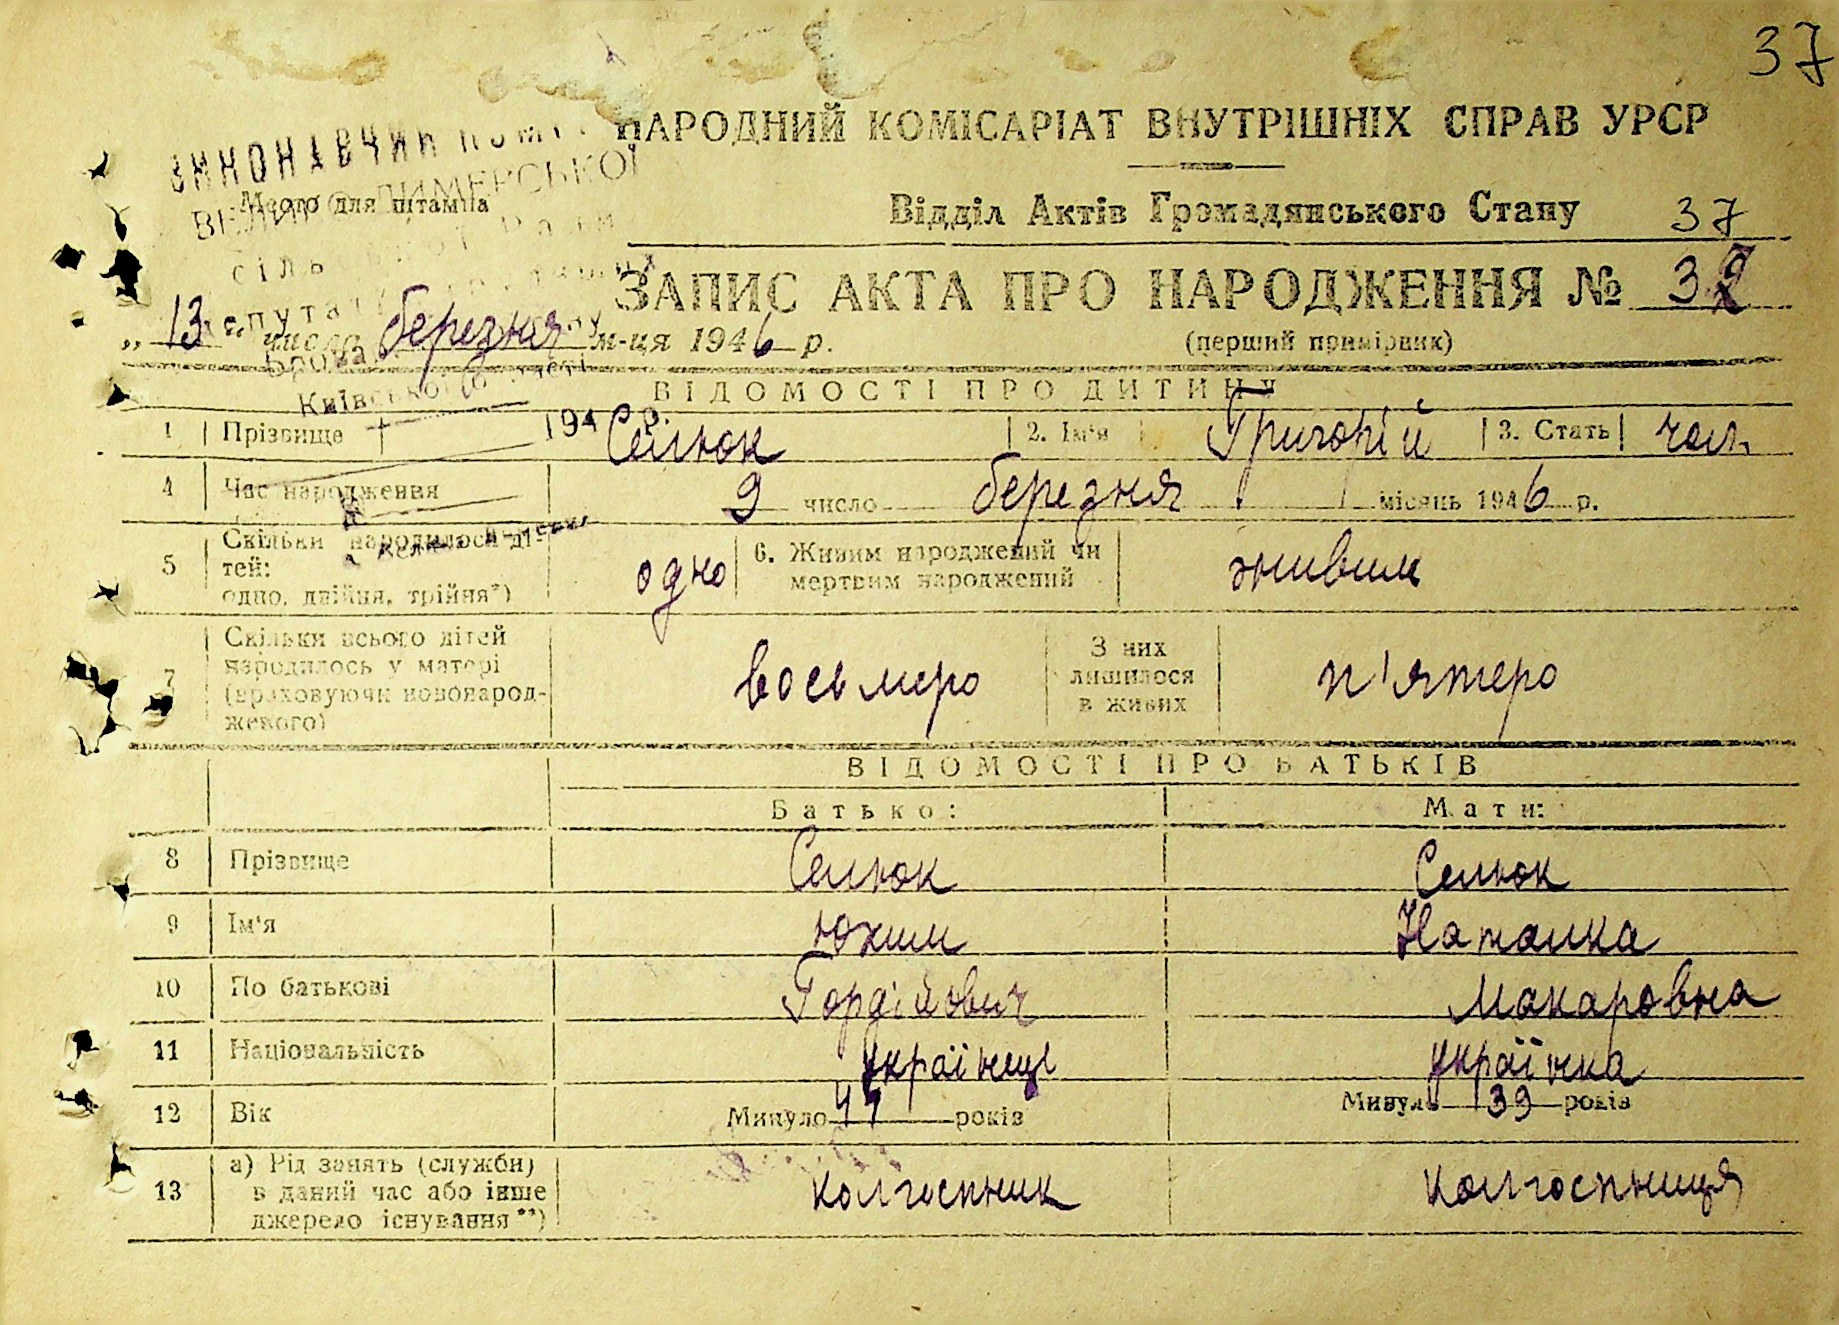 37
НАРОДНИЙ КОМІСАРІАТ ВНУТРІШНІХ СПРАВ УРСР
Место для штампа
Відділ Актів Громадянського Стану 37
ЗАПИС АКТА ПРО НАРОДЖЕННЯ №
„13“ числа березня м-ця 1946 р.
(перший примірник)
ВІДОМОСТІ ПРО ДИТИНУ
1 Прізвище Селюк 2. Ім'я Григорій 3. Стать чол.
4 Час народження 9 число березня місяць 1946 р.
5 Скільки народилося дітей: одно, двійня, трійня*) одно 6. Живим народжений чи мертвим народжений живим
7 Скільки всього дітей народилось у матері (враховуючи новонародженого) восьмеро З них лишилося в живих п'ятеро
ВІДОМОСТІ ПРО БАТЬКІВ
Батько: Мати:
8 Прізвище Селюк Селюк
9 Ім'я Юхим Наталка
10 По батькові Гордійович Макаровна
11 Національність українец українка
12 Вік Минуло років Минуло 39 років
13 а) Рід занять (служби) в даний час або інше джерело існування**) колгоспник колгоспниця